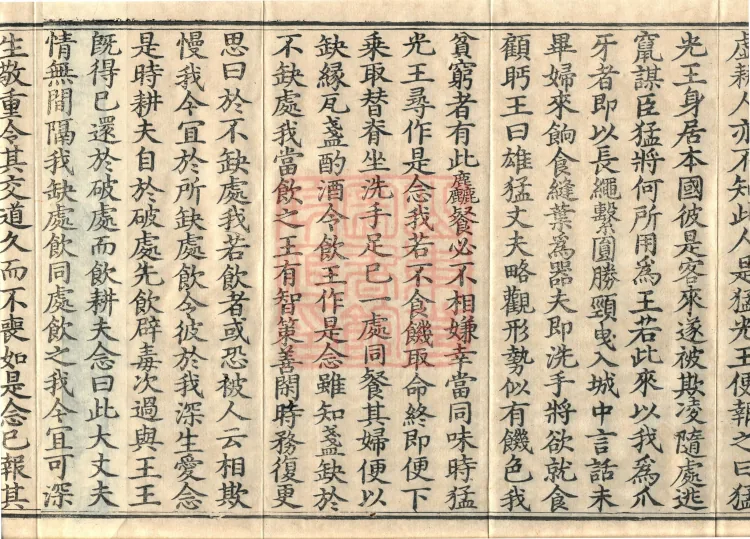 虛耕人亦不知此人是猛光王便報之曰猛
光王身居本國彼是客來遂被欺凌隨處逃
竄謀臣猛將何所用為王若此來以我為爪
牙者即以長繩繫圓勝頸曳入城中言話未
畢婦來餉食縫葉為器夫即洗手將欲就食
顧眄王曰雄猛丈夫略觀形勢似有饑色我
貧窮者有此麤餐必不相嫌幸當同味時猛
光王尋作是念我若不食饑取命終即便下
乘取替脊坐洗手足已一處同餐其婦便以
缺緣瓦盞酌酒令飲王作是念雖知盞缺於
不缺處我當飲之王有智策善閑時務復更
思曰於不缺處我若飲者或恐被人云相欺
慢我今宜於所缺處飲令彼於我深生愛念
是時耕夫自於破處先飲辟毒次過與王王
既得已還於破處而飲耕夫念曰此大丈夫
情無間隔我缺處飲同處飲之我今宜可深
生敬重令其交道久而不喪如是念已報其